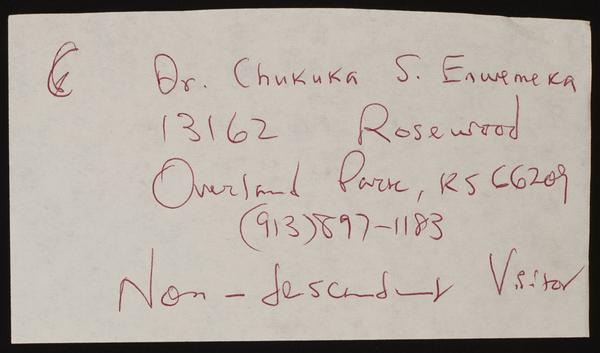 Dr. Chukuka S. Enwemeka
13162 Rosewood
Overland Park, KS 66209
(913)897-1183
Non-descendant Visitor